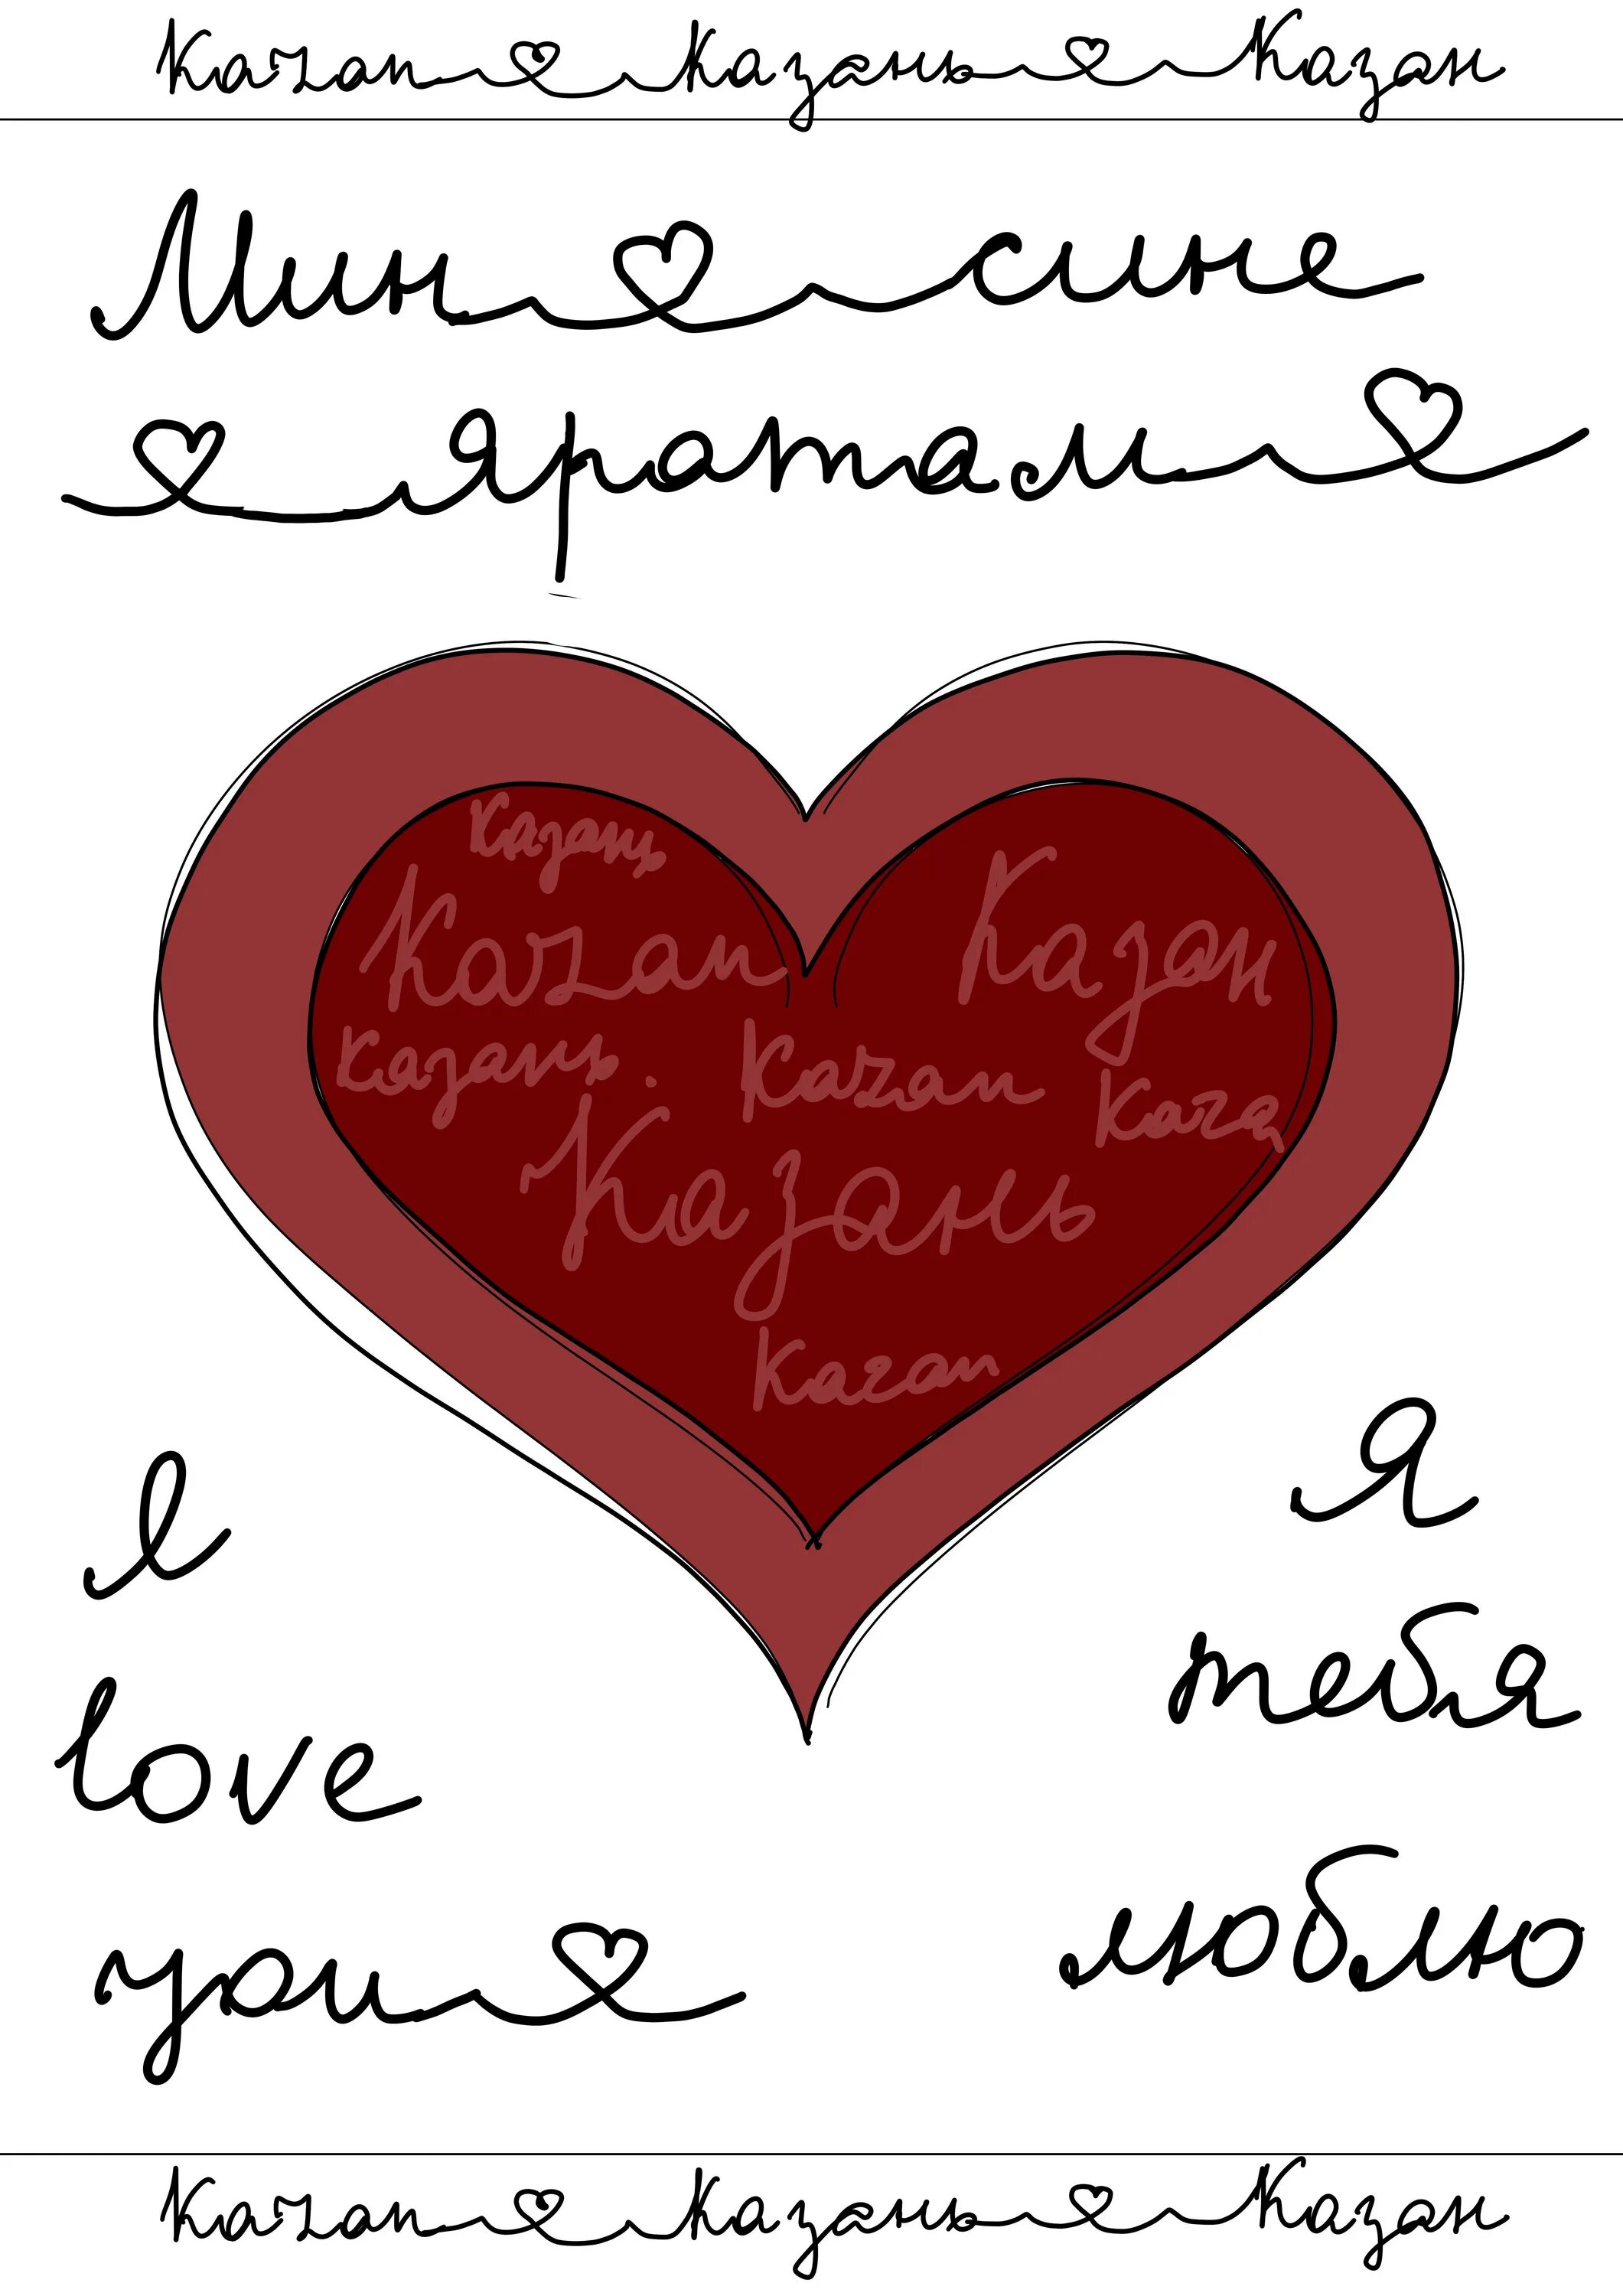 Kazan Казань Казан
Мин сине
яратам
Казань
Kazan Казан
Казань Kazan Kaza
Казань
Kazan
I
love
you
Я
тебя
люблю
Kazan Казань Казан